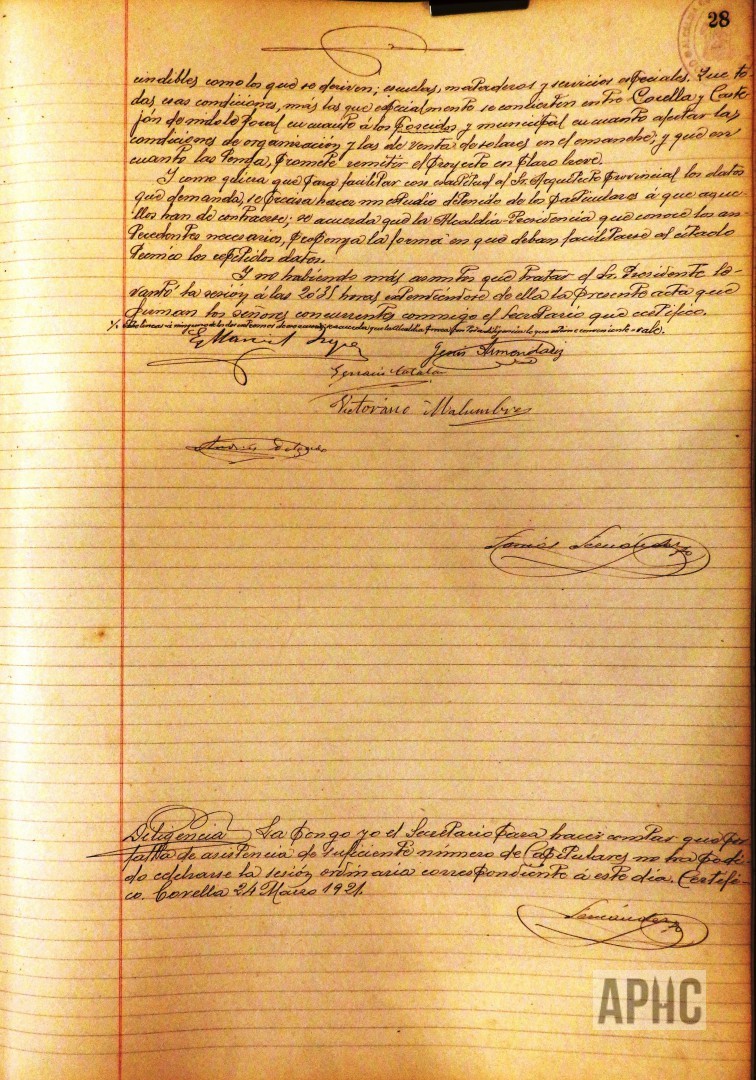 28
cindibles como los que se deriven; escuelas, mataderos y servicios especiales. Que to-
das esas condiciones, más las que especialmente se concierten entre Corella y Caste-
jón de modo local en cuanto á los y municipal en cuanto afectar las
condiciones de organización y las de venta de solares en el ensanche, y que en
cuanto las tenga, promete remitir el proyecto en plazo breve.
Y como quiera que para facilitar con exactitud al Sr. Arquitecto Provincial los datos
que demanda, se precisa hacer un estudio detenido de los particulares á que aque-
llos han de contraerse; se acuerda que la Alcaldía-Presidencia que conoce los an-
tecedentes necesarios, proponga la forma en que deban facilitarse al citado
técnico los repetidos datos.
Y no habiendo más asuntos que tratar el Sr. Presidente le-
vantó la sesión á las 20'35 horas extendiéndose de ella la presente acta que
firman los señores concurrentes conmigo el Secretario que certifico.
Manuel
Jesús Armendariz
Ignacio Catalán
Victoriano Malumbres
Andrés Delgado
Tomás Fernández
Diligencia La pongo yo el Secretario para hacer constar que por
falta de asistencia de suficiente número de Capitulares no ha podi-
do celebrarse la sesión ordinaria correspondiente á este día. Certifi-
co. Corella 24 Marzo 1921.
Fernández
APHC